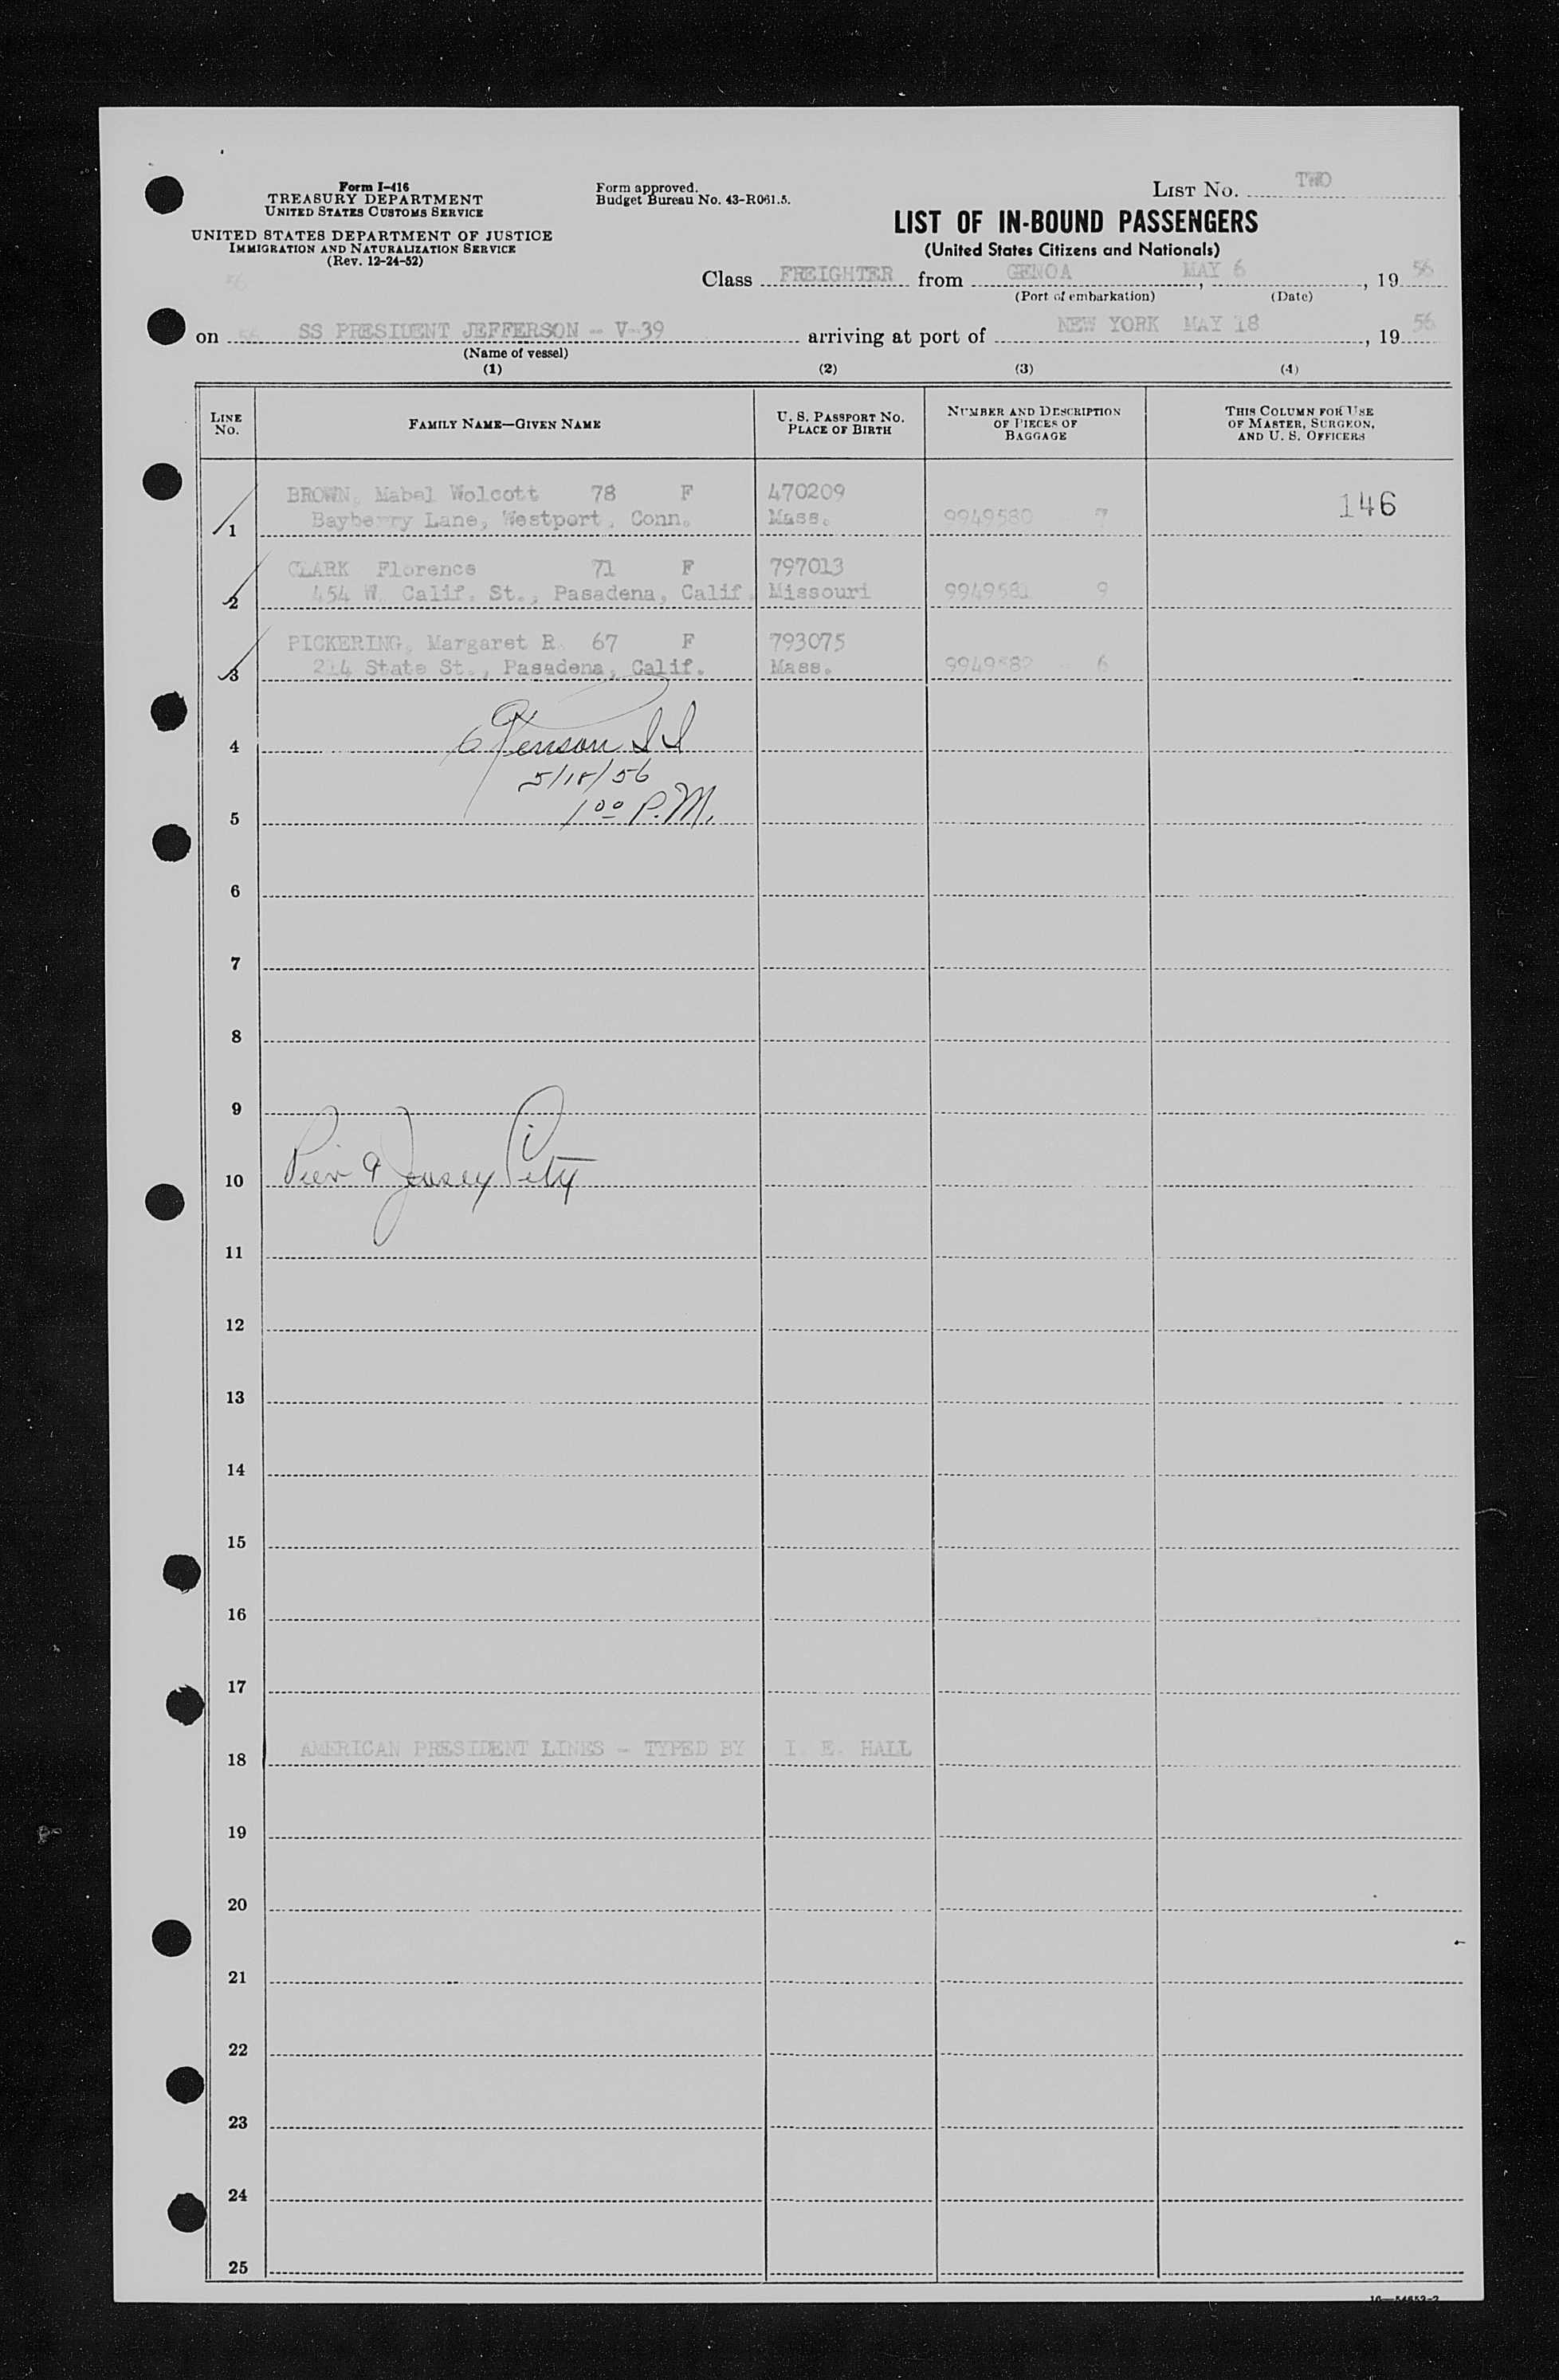 Form I-416
TREASURY DEPARTMENT
UNITED STATES CUSTOMS SERVICE
UNITED STATES DEPARTMENT OF JUSTICE
IMMIGRATION AND NATURALIZATION SERVICE
(Rev. 12-24-52)
Form approved.
Budget Bureau No. 43-R061.5.
LIST NO. TWO
LIST OF IN-BOUND PASSENGERS
(United States Citizens and Nationals)
56
Class FREIGHTER from GENOA, MAY 6, 19 56
(Port of embarkation) (Date)
on 56 SS PRESIDENT JEFFERSON - V-39 arriving at port of NEW YORK MAY 18, 19 56
(Name of vessel)
(1) (2) (3) (4)
LINE NO.
FAMILY NAME—GIVEN NAME
U. S. PASSPORT NO.
PLACE OF BIRTH
NUMBER AND DESCRIPTION
OF PIECES OF
BAGGAGE
THIS COLUMN FOR USE
OF MASTER, SURGEON,
AND U. S. OFFICERS
BROWN, Mabel Wolcott 78 F 470209 146
1 Bayberry Lane, Westport, Conn. Mass. 9949580 7
CLARK Florence 71 F 797013
2 454 W. Calif. St., Pasadena, Calif. Missouri 9949581 9
PICKERING, Margaret R. 67 F 793075
3 214 State St., Pasadena, Calif. Mass. 9949582 6
4
5/18/56
5 1 00 P.M.
6
7
8
9
10 Pier 9 Jersey City
11
12
13
14
15
16
17
18 AMERICAN PRESIDENT LINES - TYPED BY I. E. HALL
19
20
21
22
23
24
25